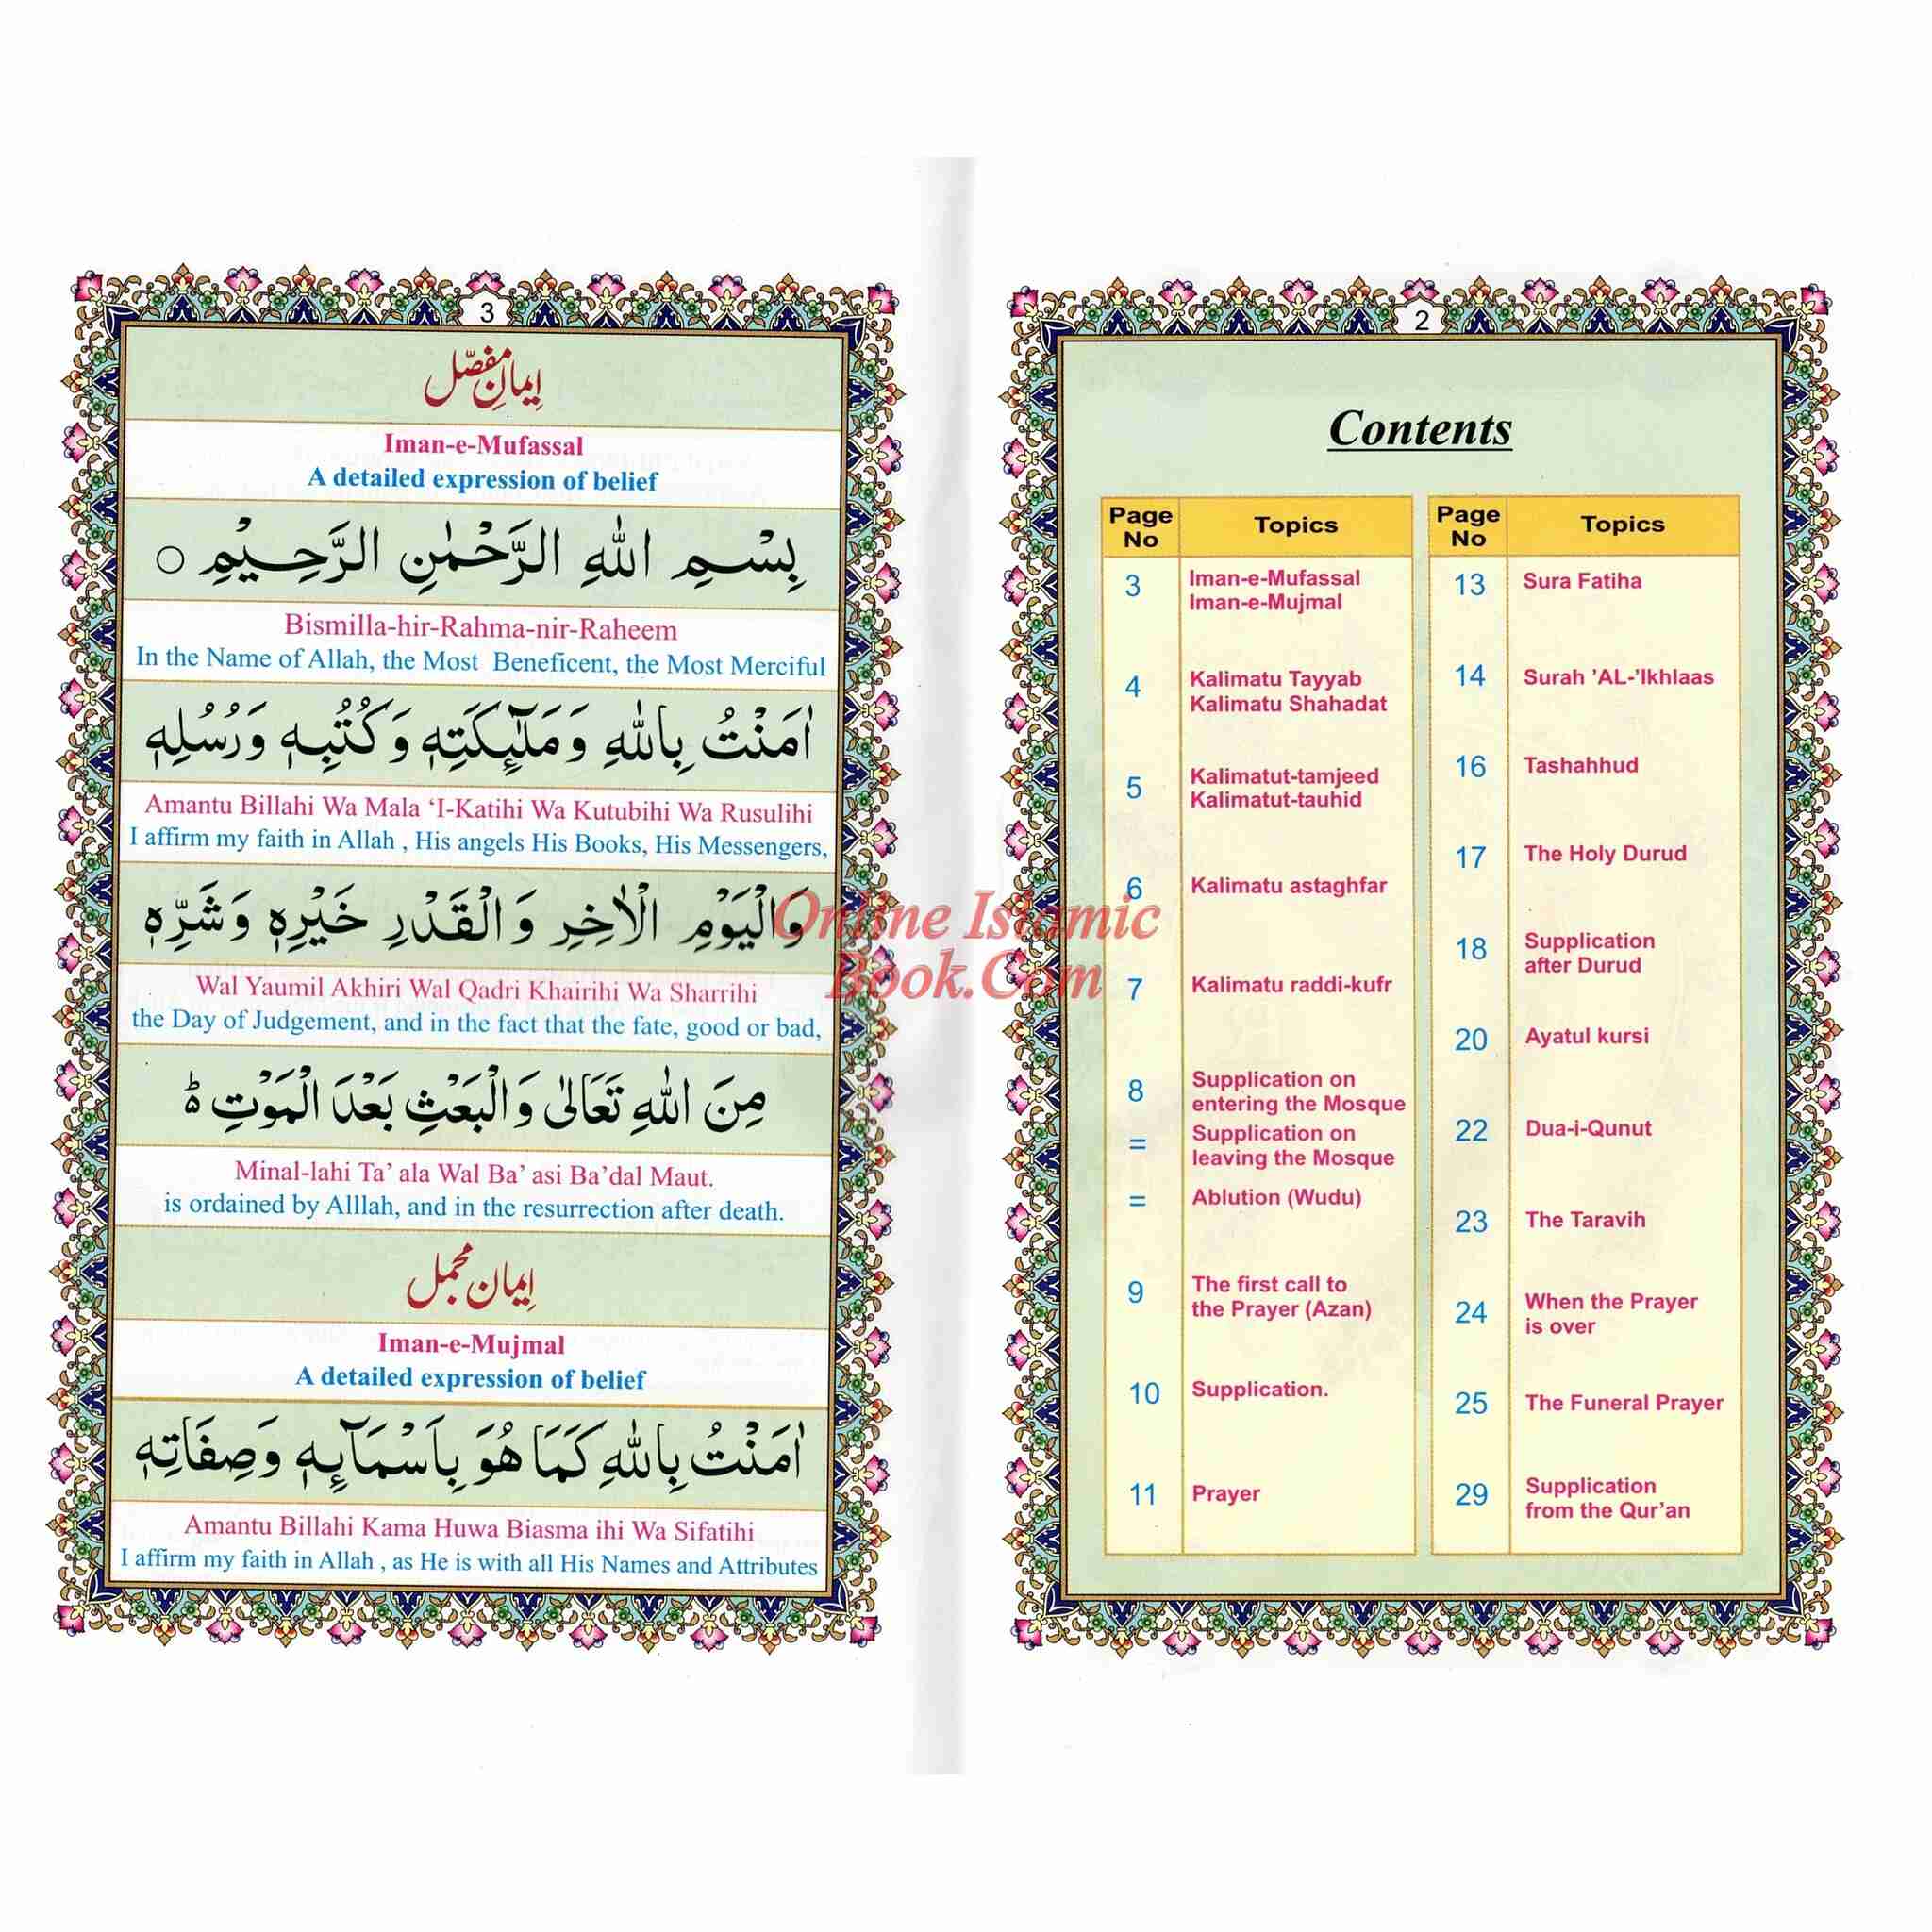 3
إيمانِ مفصّل
Iman-e-Mufassal
A detailed expression of belief
بِسْمِ اللهِ الرَّحْمٰنِ الرَّحِيْمِ ○
Bismilla-hir-Rahma-nir-Raheem
In the Name of Allah, the Most Beneficent, the Most Merciful
اٰمَنْتُ بِاللّٰهِ وَمَلٰٓئِكَتِهٖ وَكُتُبِهٖ وَرُسُلِهٖ
Amantu Billahi Wa Mala ‘I-Katihi Wa Kutubihi Wa Rusulihi
I affirm my faith in Allah , His angels His Books, His Messengers,
وَالْيَوْمِ الْاٰخِرِ وَالْقَدْرِ خَيْرِهٖ وَشَرِّهٖ
Wal Yaumil Akhiri Wal Qadri Khairihi Wa Sharrihi
the Day of Judgement, and in the fact that the fate, good or bad,
مِنَ اللّٰهِ تَعَالٰى وَالْبَعْثِ بَعْدَ الْمَوْتِ ؕ
Minal-lahi Ta’ ala Wal Ba’ asi Ba’dal Maut.
is ordained by Alllah, and in the resurrection after death.
إيمان مجمل
Iman-e-Mujmal
A detailed expression of belief
اٰمَنْتُ بِاللّٰهِ كَمَا هُوَ بِاَسْمَآئِهٖ وَصِفَاتِهٖ
Amantu Billahi Kama Huwa Biasma ihi Wa Sifatihi
I affirm my faith in Allah , as He is with all His Names and Attributes
Online Islamic
Book.Com
2
Contents
Page No Topics
3 Iman-e-Mufassal
Iman-e-Mujmal
4 Kalimatu Tayyab
Kalimatu Shahadat
5 Kalimatut-tamjeed
Kalimatut-tauhid
6 Kalimatu astaghfar
7 Kalimatu raddi-kufr
8 Supplication on
entering the Mosque
= Supplication on
leaving the Mosque
= Ablution (Wudu)
9 The first call to
the Prayer (Azan)
10 Supplication.
11 Prayer
Page No Topics
13 Sura Fatiha
14 Surah ’AL-’Ikhlaas
16 Tashahhud
17 The Holy Durud
18 Supplication
after Durud
20 Ayatul kursi
22 Dua-i-Qunut
23 The Taravih
24 When the Prayer
is over
25 The Funeral Prayer
29 Supplication
from the Qur’an